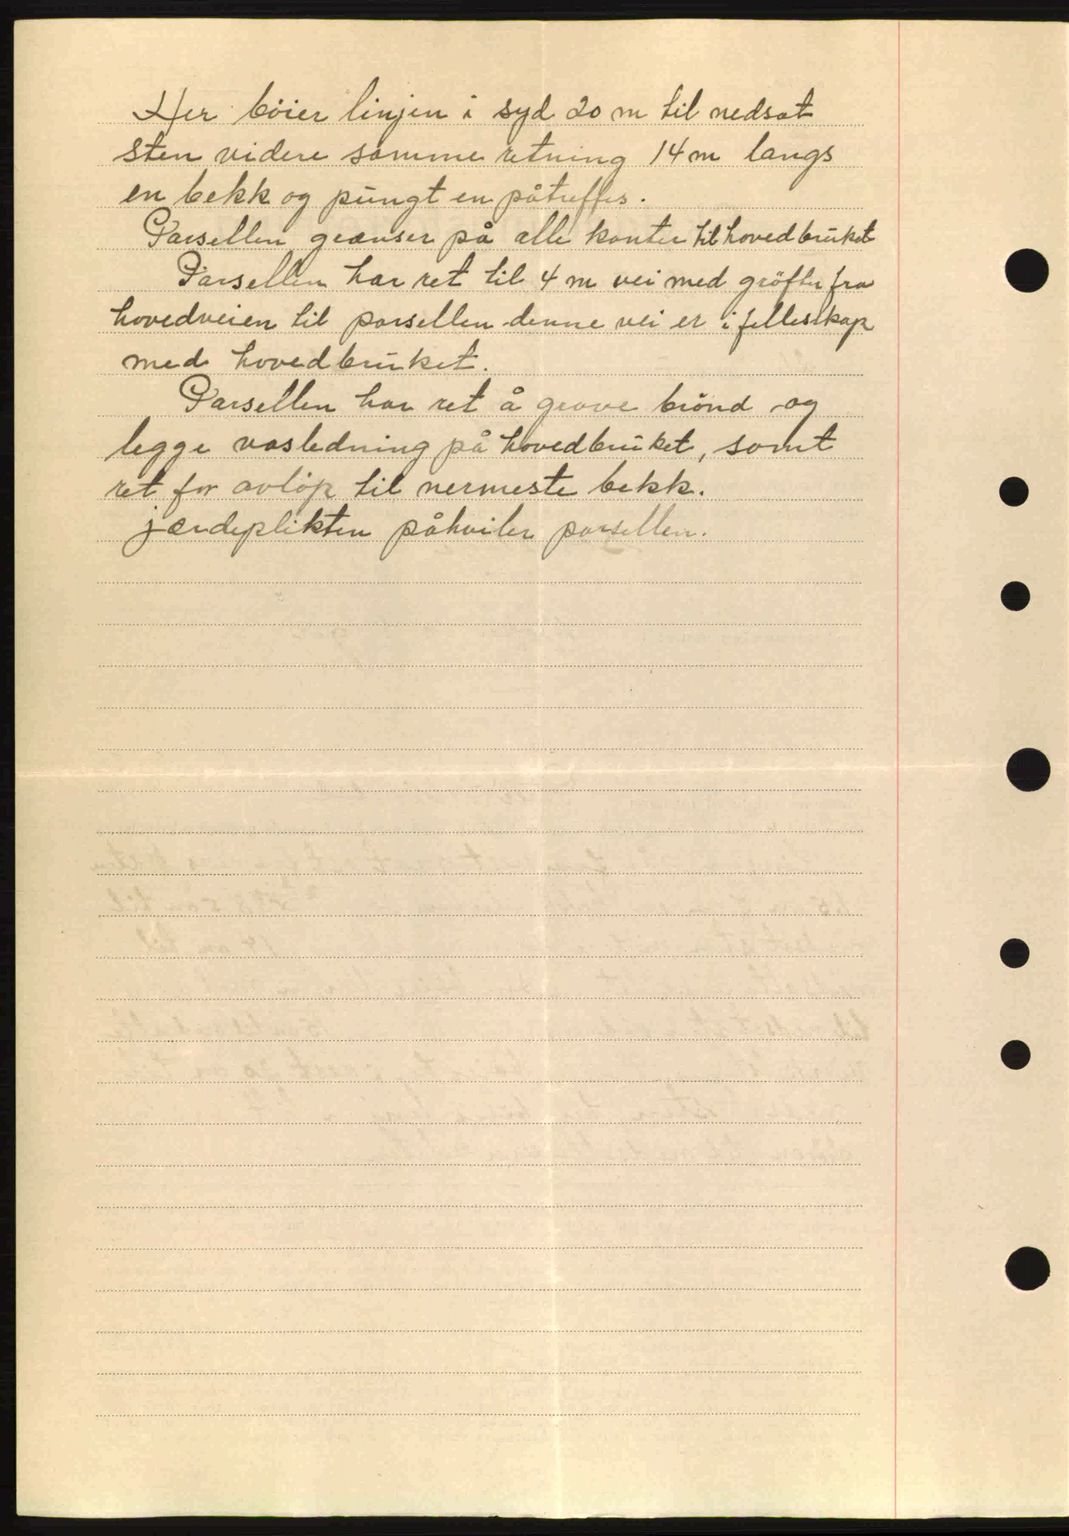 Her böier linjen i syd 20 m til nedsat
sten videre samme retning 14 m langs
en bekk og pungt en påtreffes.
Parsellen grænser på alle kanter til hovedbruket
Parsellen har ret til 4 m vei med gröfter fra
hovedveien til parsellen denne vei er i fellesskap
med hovedbruket.
Parsellen har ret å grave brönd og
legge vasledning på hovedbruket, samt
ret for avlöp til nermeste bekk.
jærdeplikten påhviler parsellen.